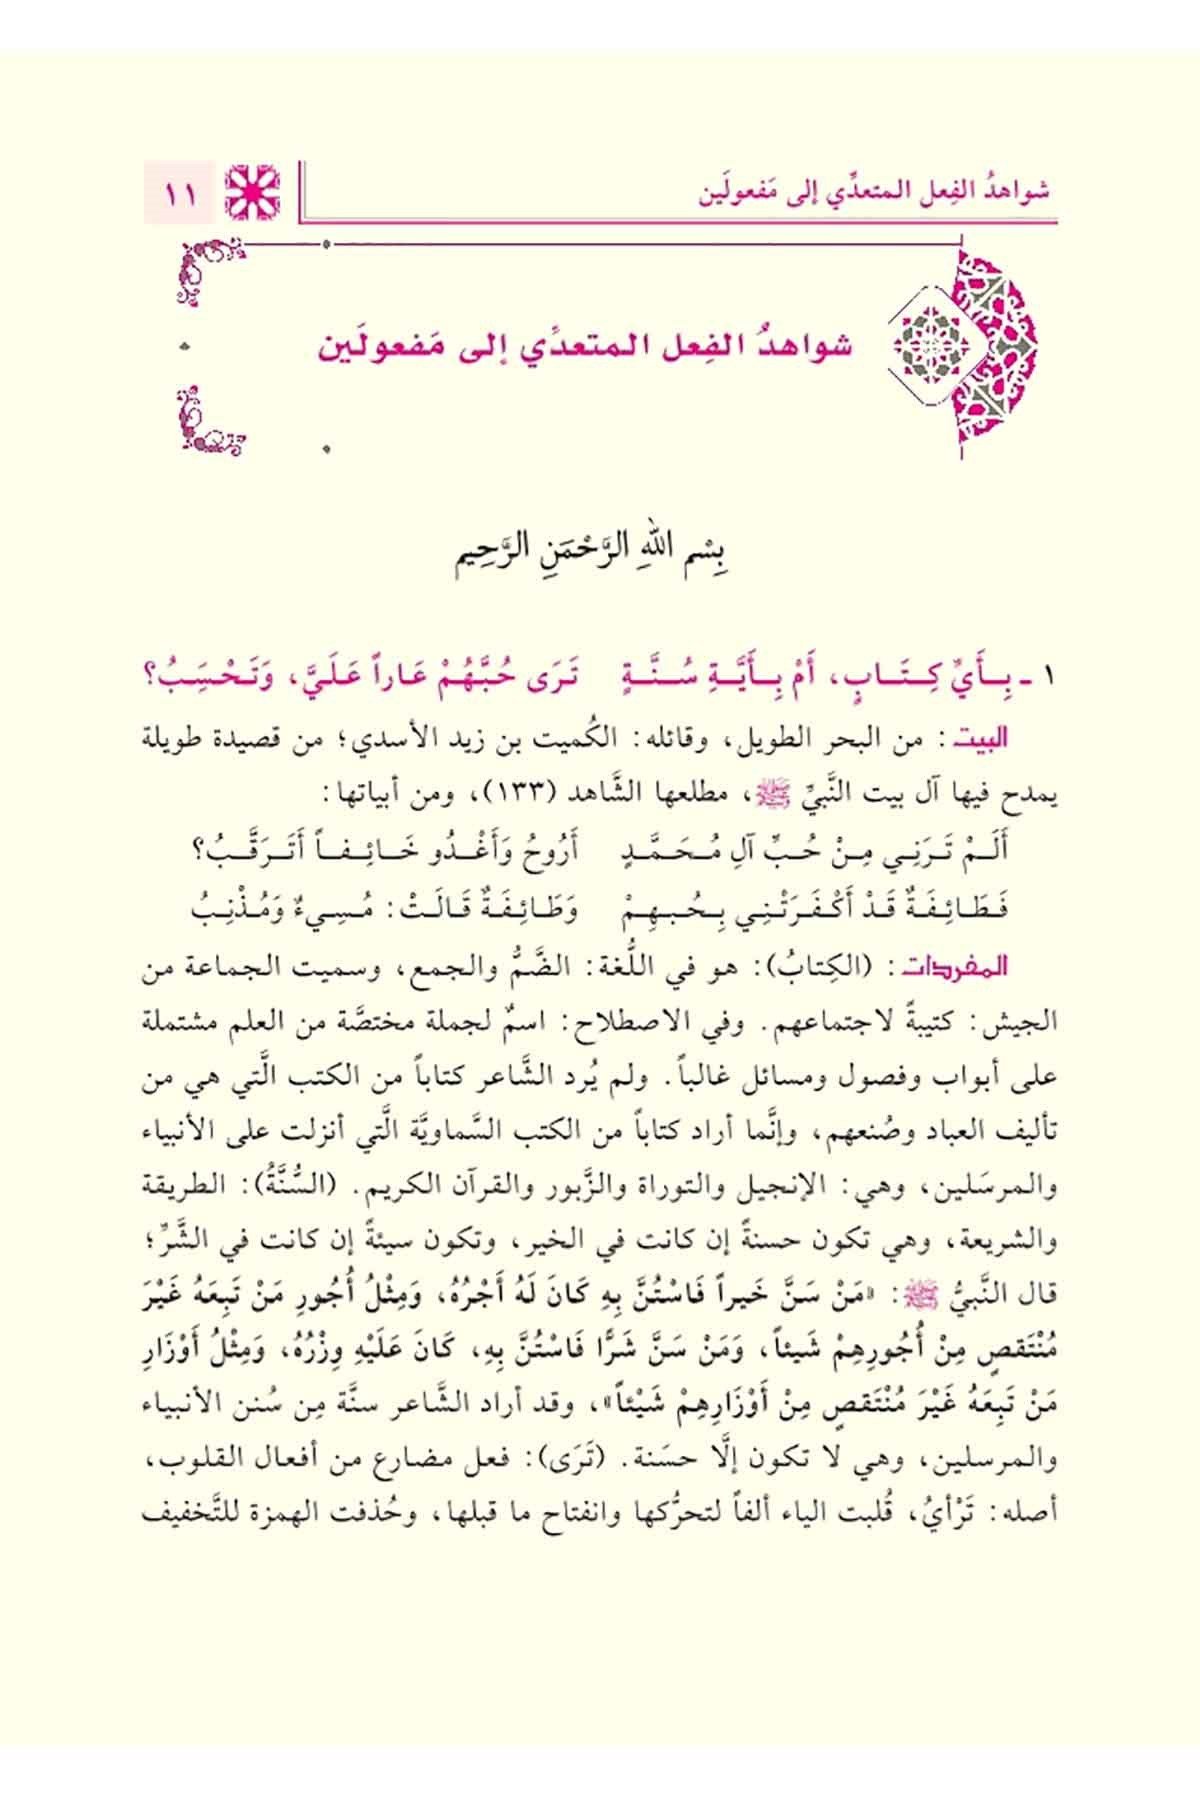 شواهدُ الفِعل المتعدِّي إلى مَفعولَين
١١
شواهدُ الفِعل المتعدِّي إلى مَفعولَين
بِسْمِ اللهِ الرَّحْمَنِ الرَّحِيمِ
١ ـ بِـأَيِّ كِتَـابٍ، أَمْ بِـأَيَّـةِ سُـنَّـةٍ تَـرَى حُبَّهُمْ عَاراً عَلَيَّ، وَتَحْسِبُ؟
البيت: من البحر الطويل، وقائله: الكُميت بن زيد الأسدي؛ من قصيدة طويلة
يمدح فيها آل بيت النَّبيِّ ﷺ، مطلعها الشَّاهد (١٣٣)، ومن أبياتها:
أَلَـمْ تَـرَنِـي مِـنْ حُـبِّ آلِ مُـحَـمَّـدٍ أَرُوحُ وَأَغْـدُو خَـائِـفـاً أَتَـرَقَّـبُ؟
فَـطَـائِـفَةٌ قَـدْ أَكْـفَـرَتْـنِـي بِـحُـبـهِـمْ وَطَـائِـفَةٌ قَـالَـتْ: مُـسِـيءٌ وَمُـذْنِـبُ
المفردات: (الكِتابُ): هو في اللُّغة: الضَّمُّ والجمع، وسميت الجماعة من
الجيش: كتيبةً لاجتماعهم. وفي الاصطلاح: اسمٌ لجملة مختصَّة من العلم مشتملة
على أبواب وفصول ومسائل غالباً. ولم يُرد الشَّاعر كتاباً من الكتب الَّتي هي من
تأليف العباد وصُنعهم، وإنَّما أراد كتاباً من الكتب السَّماويَّة الَّتي أنزلت على الأنبياء
والمرسَلين، وهي: الإنجيل والتوراة والزَّبور والقرآن الكريم. (السُّنَّةُ): الطريقة
والشريعة، وهي تكون حسنةً إن كانت في الخير، وتكون سيئةً إن كانت في الشَّرِّ؛
قال النَّبيُّ ﷺ: «مَنْ سَنَّ خَيراً فَاسْتُنَّ بِهِ كَانَ لَهُ أَجْرُهُ، وَمِثْلُ أُجُورِ مَنْ تَبِعَهُ غَيْرَ
مُنْتَقصٍ مِنْ أُجُورِهِمْ شَيئاً، وَمَنْ سَنَّ شَرًّا فَاسْتُنَّ بِهِ، كَانَ عَلَيْهِ وِزْرُهُ، وَمِثْلُ أَوْزَارِ
مَنْ تَبِعَهُ غَيْرَ مُنْتَقصٍ مِنْ أَوْزَارِهِمْ شَيْئاً»، وقد أراد الشَّاعر سنَّة مِن سُنن الأنبياء
والمرسلين، وهي لا تكون إلَّا حسَنة. (تَرَى): فعل مضارع من أفعال القلوب،
أصله: تَرْأيُ، قُلبت الياء ألفاً لتحرُّكها وانفتاح ما قبلها، وحُذفت الهمزة للتَّخفيف